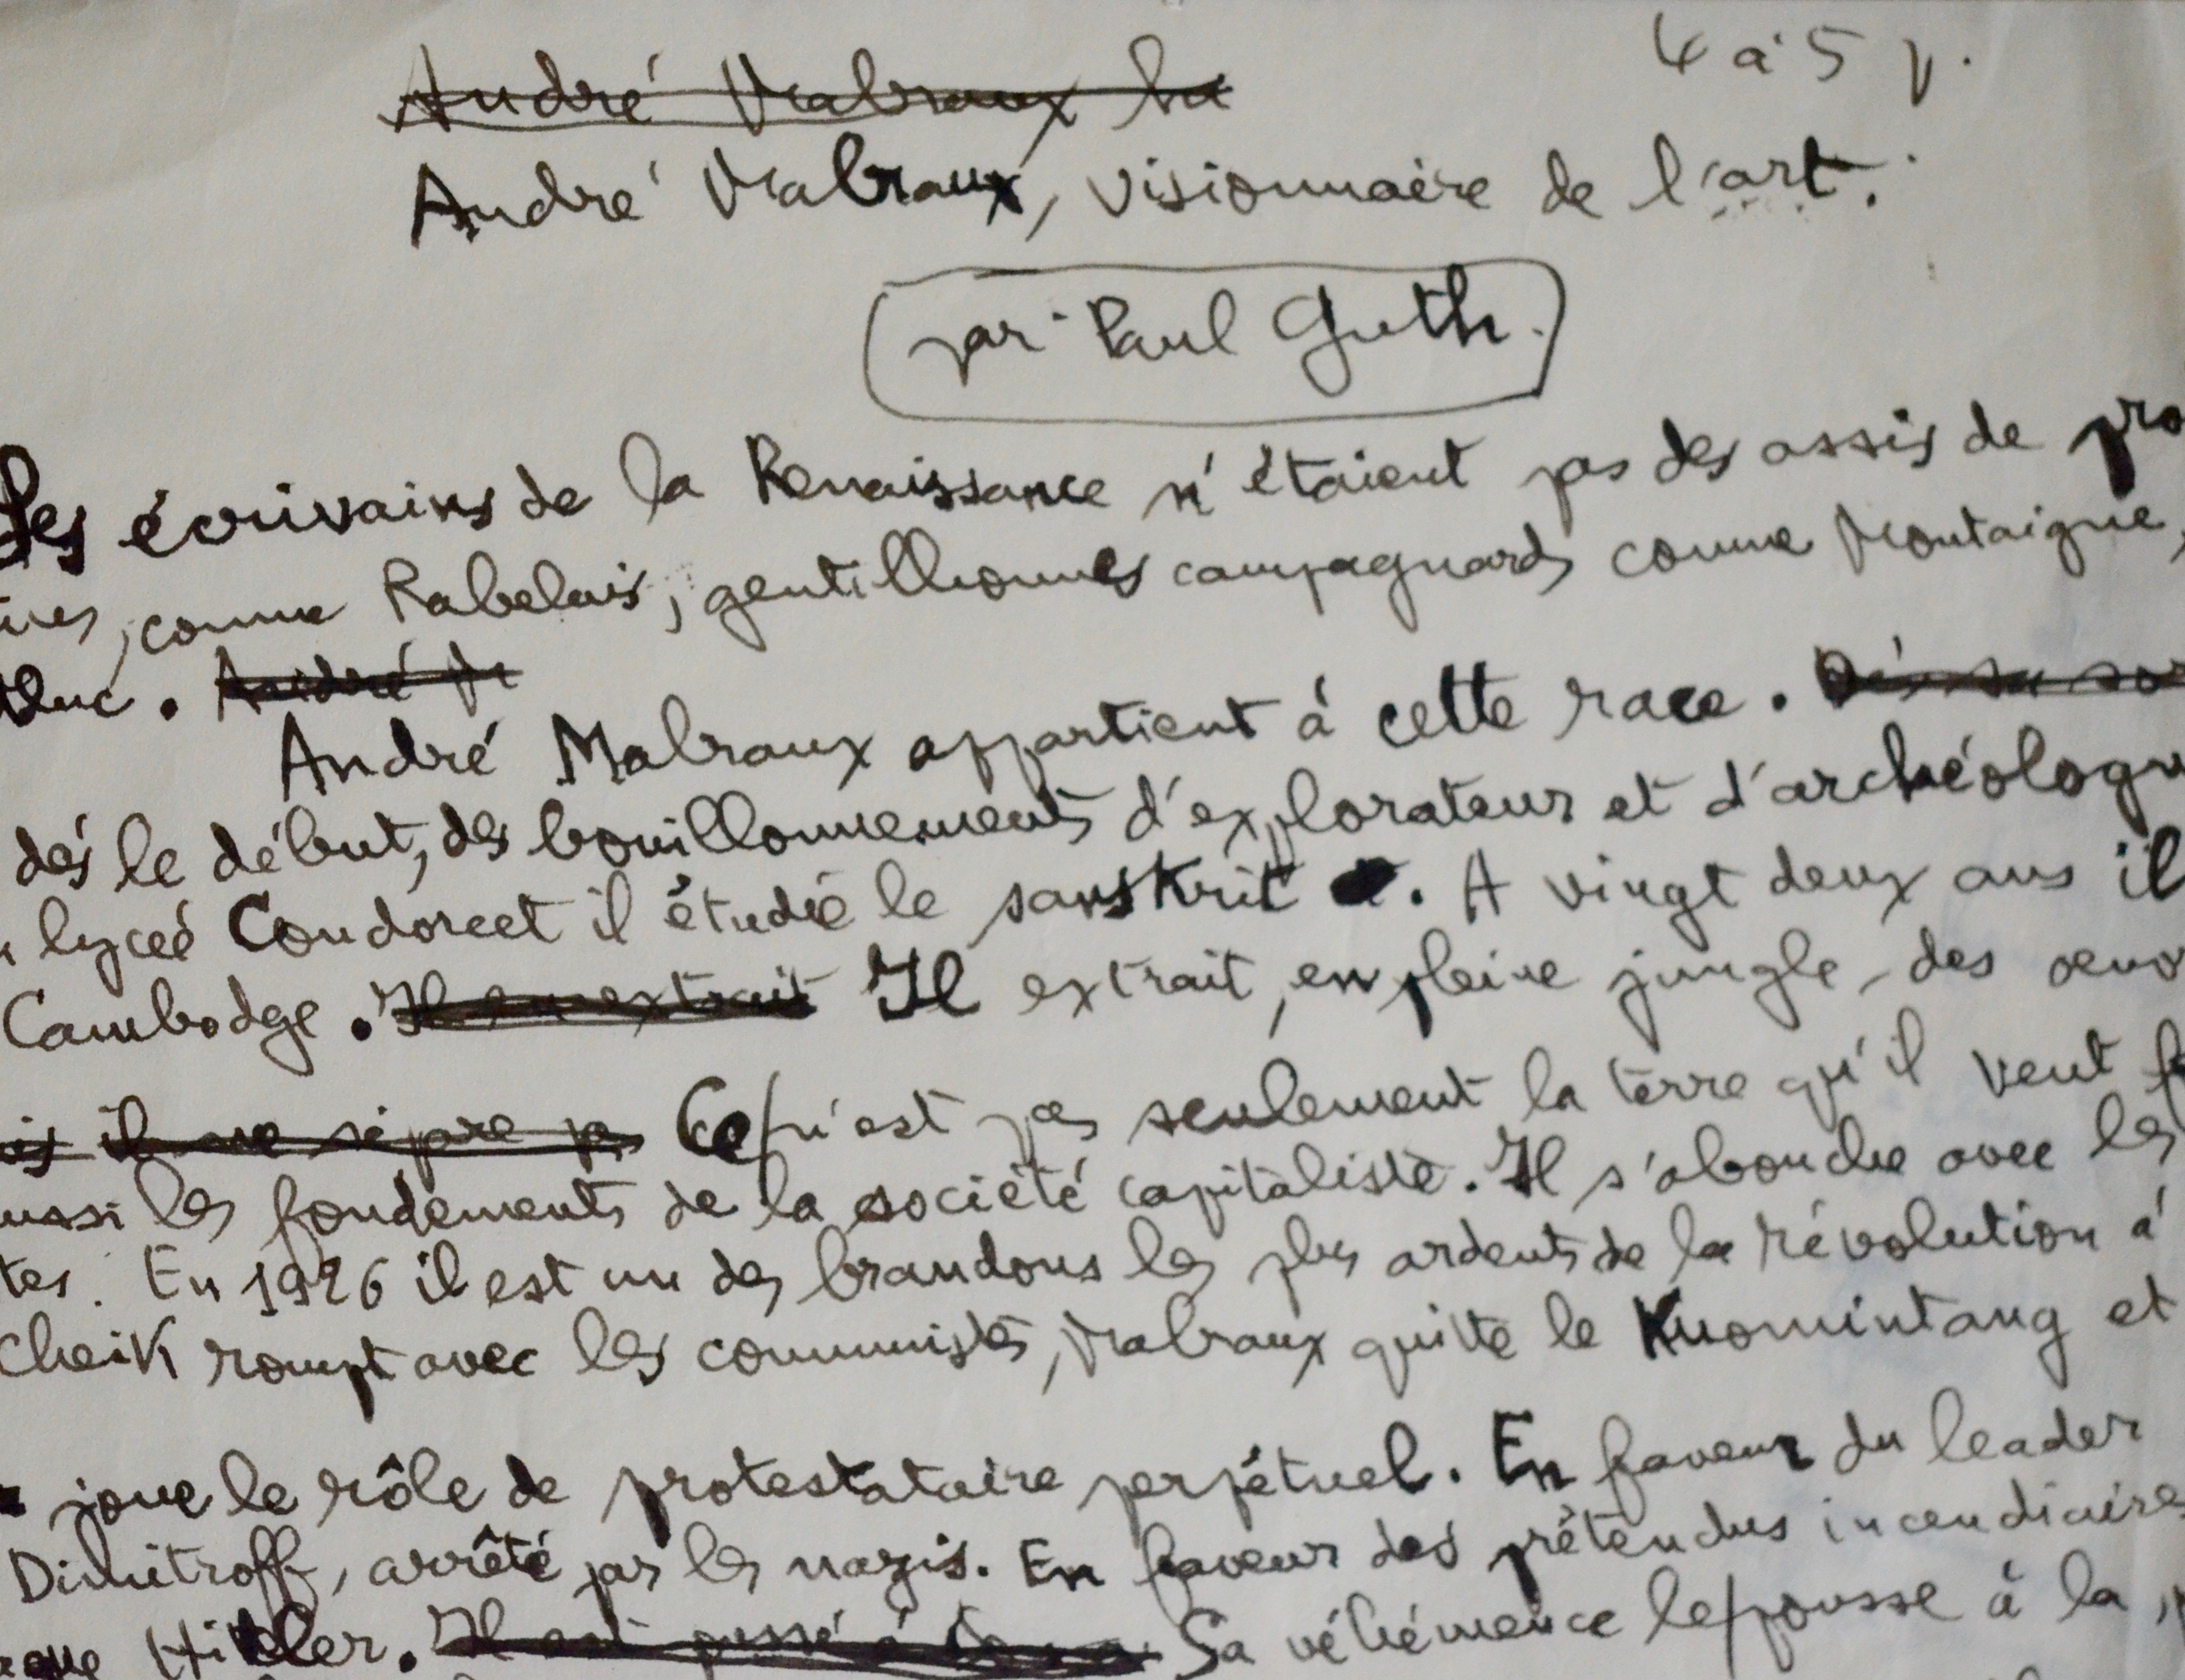 4 à 5 p.
André Malraux
André Malraux, visionnaire de l'art.
par Paul Guth.
Les écrivains de la Renaissance n'étaient pas des assis de pro
comme Rabelais, gentilhommes campagnards comme Montaigne,
luc. André M
André Malraux appartient à cette race. Dès sa sor
dès le début, des bouillonnements d'explorateur et d'archéologu
lycée Condorcet il étudie le sanskrit. A vingt deux ans il
Cambodge. Il en extrait Il extrait, en pleine jungle, des oeuv
is il ne sépare pas Ce n'est pas seulement la terre qu'il veut f
ussi les fondements de la société capitaliste. Il s'abouche avec les
tes. En 1926 il est un des brandons les plus ardents de la révolution à
Cheik rompt avec les communistes, Malraux quitte le Kuomintang et
joue le rôle de protestataire perpétuel. En faveur du leader
Dimitroff, arrêté par les nazis. En faveur des prétendus incendiaires
que Hitler. Il est Sa véhémence le pousse à la